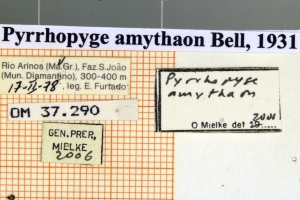 Pyrrhopyge amythaon Bell, 1931
Rio Arinos (Ma.Gr.), Faz.S.João
(Mun. Diamantino), 300-400 m
, leg. E. Furtado
OM 37.290
GEN.PREP.
MIELKE
2006
Pyrrhopyge
amythaon
O Mielke det